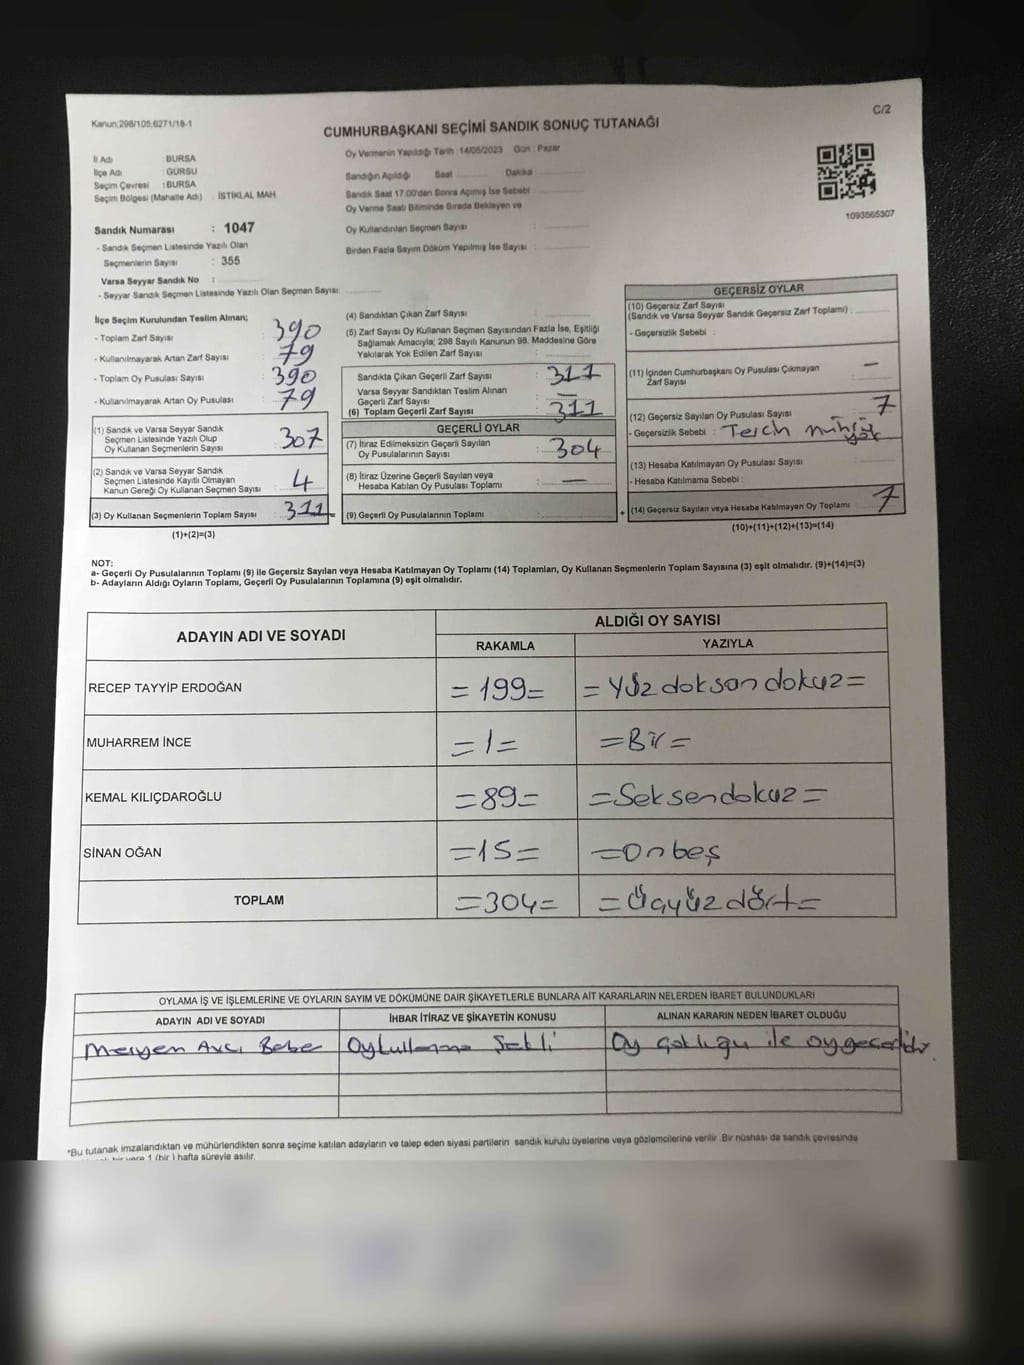 Kanun;298/105;6271/18-1
C/2
CUMHURBAŞKANI SEÇİMİ SANDIK SONUÇ TUTANAĞI
İl Adı : BURSA
İlçe Adı : GÜRSU
Seçim Çevresi : BURSA
Seçim Bölgesi (Mahalle Adı) : İSTİKLAL MAH
Sandık Numarası : 1047
- Sandık Seçmen Listesinde Yazılı Olan
Seçmenlerin Sayısı : 355
Varsa Seyyar Sandık No :
- Seyyar Sandık Seçmen Listesinde Yazılı Olan Seçmen Sayısı:
Oy Vermenin Yapıldığı Tarih : 14/05/2023 Gün : Pazar
Sandığın Açıldığı Saat Dakika
Sandık Saat 17:00'den Sonra Açımış İse Sebebi
Oy Verme Saati Bitiminde Sırada Bekleyen ve
Oy Kullandırılan Seçmen Sayısı :
Birden Fazla Sayım Döküm Yapılmış İse Sayısı :
1093565307
İlçe Seçim Kurulundan Teslim Alınan;
- Toplam Zarf Sayısı : 390
- Kullanılmayarak Artan Zarf Sayısı : 79
- Toplam Oy Pusulası Sayısı : 390
- Kullanılmayarak Artan Oy Pusulası : 79
(1) Sandık ve Varsa Seyyar Sandık
Seçmen Listesinde Yazılı Olup
Oy Kullanan Seçmenlerin Sayısı : 307
(2) Sandık ve Varsa Seyyar Sandık
Seçmen Listesinde Kayıtlı Olmayan
Kanun Gereği Oy Kullanan Seçmen Sayısı : 4
(3) Oy Kullanan Seçmenlerin Toplam Sayısı : 311
(1)+(2)=(3)
(4) Sandıktan Çıkan Zarf Sayısı :
(5) Zarf Sayısı Oy Kullanan Seçmen Sayısından Fazla İse, Eşitliği
Sağlamak Amacıyla; 298 Sayılı Kanunun 98. Maddesine Göre
Yakılarak Yok Edilen Zarf Sayısı :
Sandıkta Çıkan Geçerli Zarf Sayısı : 311
Varsa Seyyar Sandıktan Teslim Alınan
Geçerli Zarf Sayısı : —
(6) Toplam Geçerli Zarf Sayısı : 311
GEÇERLİ OYLAR
(7) İtiraz Edilmeksizin Geçerli Sayılan
Oy Pusulalarının Sayısı : 304
(8) İtiraz Üzerine Geçerli Sayılan veya
Hesaba Katılan Oy Pusulası Toplamı : —
(9) Geçerli Oy Pusulalarının Toplamı :
+
GEÇERSİZ OYLAR
(10) Geçersiz Zarf Sayısı
(Sandık ve Varsa Seyyar Sandık Geçersiz Zarf Toplamı) :
- Geçersizlik Sebebi :
(11) İçinden Cumhurbaşkanı Oy Pusulası Çıkmayan
Zarf Sayısı : —
(12) Geçersiz Sayılan Oy Pusulası Sayısı : 7
- Geçersizlik Sebebi : Tercih mührü
yok
(13) Hesaba Katılmayan Oy Pusulası Sayısı :
- Hesaba Katılmama Sebebi :
(14) Geçersiz Sayılan veya Hesaba Katılmayan Oy Toplamı : 7
(10)+(11)+(12)+(13)=(14)
NOT:
a- Geçerli Oy Pusulalarının Toplamı (9) ile Geçersiz Sayılan veya Hesaba Katılmayan Oy Toplamı (14) Toplamları, Oy Kullanan Seçmenlerin Toplam Sayısına (3) eşit olmalıdır. (9)+(14)=(3)
b- Adayların Aldığı Oyların Toplamı, Geçerli Oy Pusulalarının Toplamına (9) eşit olmalıdır.
ADAYIN ADI VE SOYADI
ALDIĞI OY SAYISI
RAKAMLA YAZIYLA
RECEP TAYYİP ERDOĞAN =199= =Yüz doksan dokuz=
MUHARREM İNCE =1= =Bir=
KEMAL KILIÇDAROĞLU =89= =Seksendokuz=
SİNAN OĞAN =15= =Onbeş
TOPLAM =304= =Üçyüz dört=
OYLAMA İŞ VE İŞLEMLERİNE VE OYLARIN SAYIM VE DÖKÜMÜNE DAİR ŞİKAYETLERLE BUNLARA AİT KARARLARIN NELERDEN İBARET BULUNDUKLARI
ADAYIN ADI VE SOYADI İHBAR İTİRAZ VE ŞİKAYETİN KONUSU ALINAN KARARIN NEDEN İBARET OLDUĞU
Meryem Avcı Beber Oykullanma Şekli Oy çokluğu ile oy geçerlidir.
*Bu tutanak imzalandıktan ve mühürlendikten sonra seçime katılan adayların ve talep eden siyasi partilerin sandık kurulu üyelerine veya gözlemcilerine verilir .Bir nüshası da sandık çevresinde
bir yere 1 (bir ) hafta süreyle asılır.